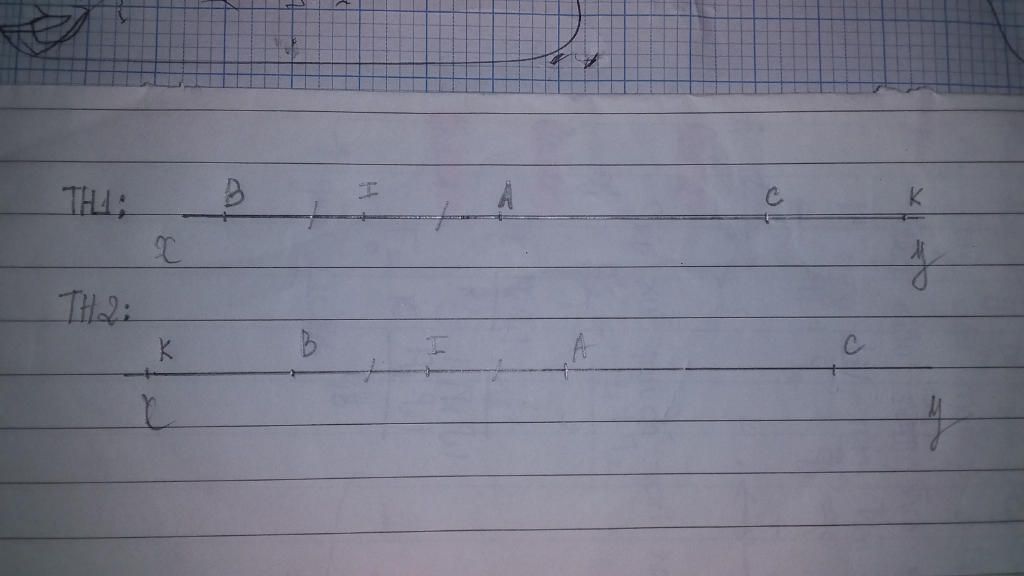 TH1: B I A C K
x y
TH2:
K B I A C
x y